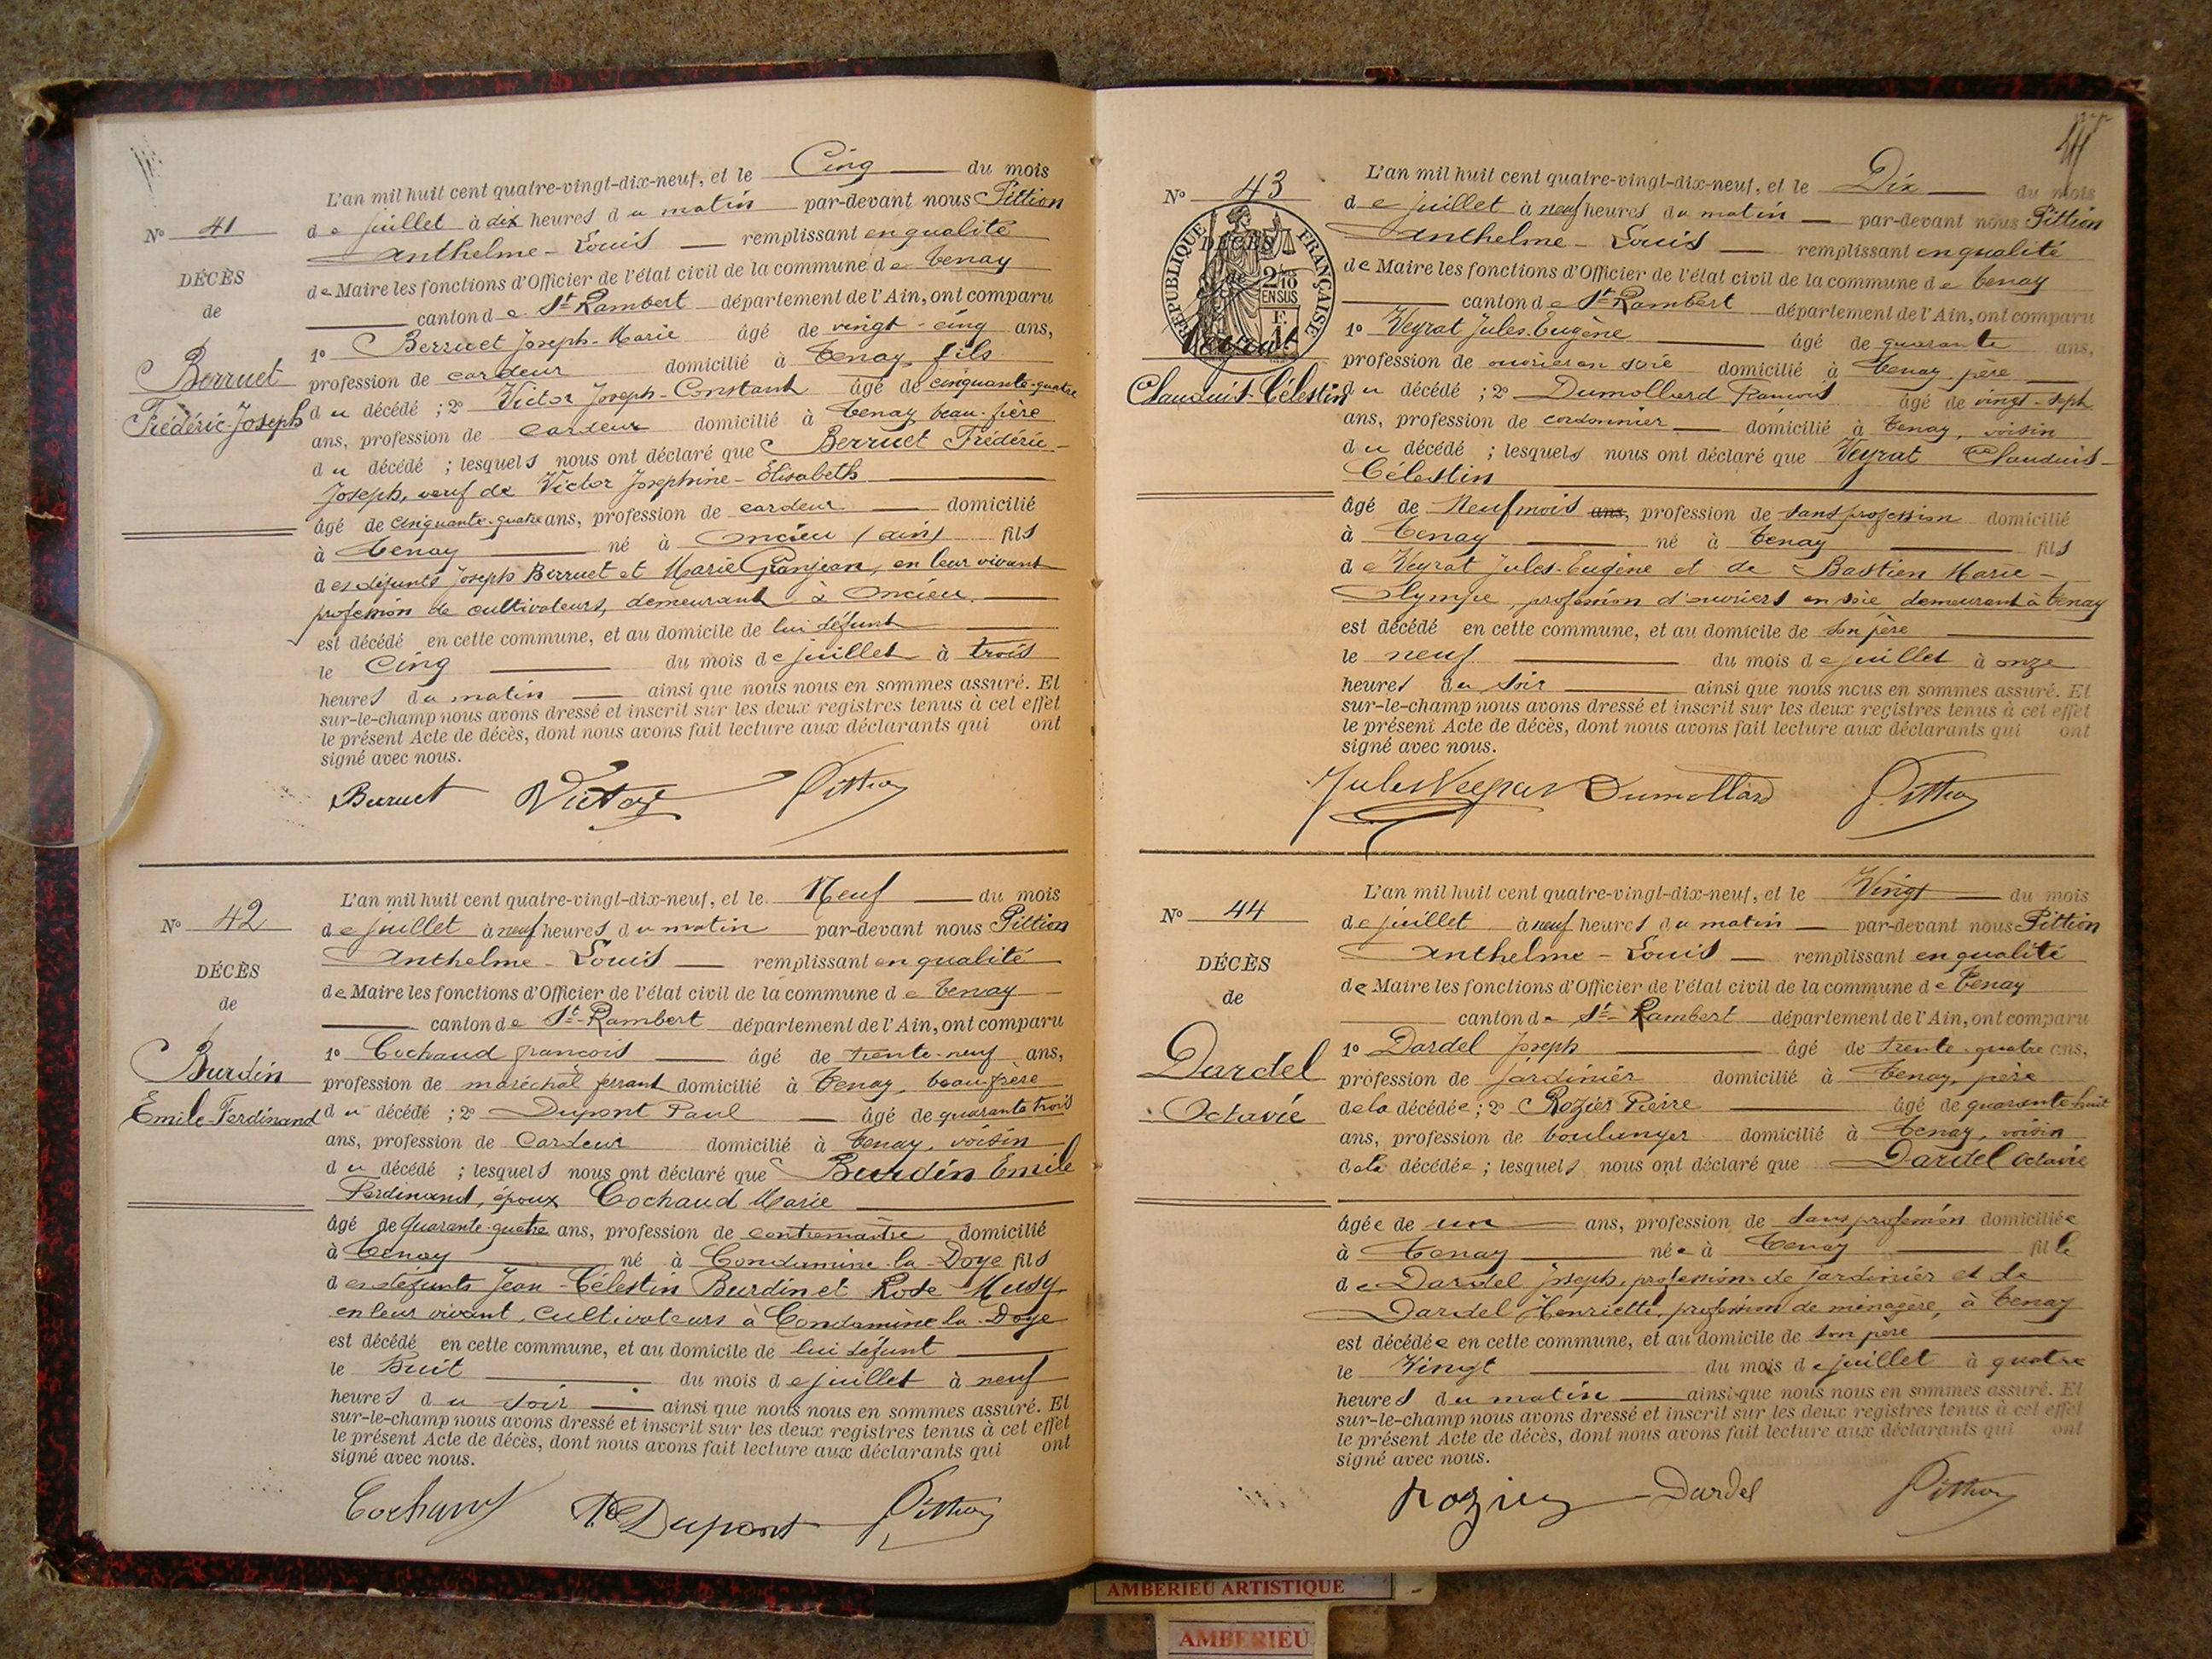 L'an mil huit cent quatre-vingt-dix-neuf, et le Cinq du mois
de juillet à dix heures du matin par-devant nous Pittion
Anthelme-Louis remplissant en qualité
de Maire les fonctions d'Officier de l'état civil de la commune de Tenay
canton de St-Rambert département de l'Ain, ont comparu
1º Berruet Joseph-Marie âgé de vingt-cinq ans,
profession de cardeur domicilié à Tenay, fils
du décédé ; 2º Victor Joseph-Constant âgé de cinquante-quatre
ans, profession de cardeur domicilié à Tenay beau-frère
du décédé ; lesquels nous ont déclaré que Berruet Frédéric-
Joseph, veuf de Victor Josephine-Elisabeth
âgé de cinquante-quatre ans, profession de cardeur domicilié
à Tenay né à Oncieu (ain) fils
des défunts Joseph Berruet et Marie Granjean, en leur vivant
profession de cultivateurs, demeurant à Oncieu.
est décédé en cette commune, et au domicile de lui défunt
le Cinq du mois de juillet à trois
heures du matin ainsi que nous nous en sommes assuré. Et
sur-le-champ nous avons dressé et inscrit sur les deux registres tenus à cet effet
le présent Acte de décès, dont nous avons fait lecture aux déclarants qui ont
signé avec nous.
Berruet Victor Pittion
Nº 41
DÉCÈS
de
Berruet
Frédéric-Joseph
L'an mil huit cent quatre-vingt-dix-neuf, et le Neuf du mois
de juillet à neuf heures du matin par-devant nous Pittion
Anthelme-Louis remplissant en qualité
de Maire les fonctions d'Officier de l'état civil de la commune de Tenay
canton de St-Rambert département de l'Ain, ont comparu
1º Cochaud françois âgé de trente-neuf ans,
profession de maréchal ferrant domicilié à Tenay, beau frère
du décédé ; 2º Dupont Paul âgé de quarante trois
ans, profession de Cardeur domicilié à Tenay, voisin
du décédé ; lesquels nous ont déclaré que Burdin Emile
Ferdinand, époux Cochaud Marie
âgé de Quarante-quatre ans, profession de contremaître domicilié
à Tenay né à Condamine-la-Doye fils
des défunts Jean-Célestin Burdin et Rose Musy
en leur vivant, cultivateurs à Condamine la-Doye
est décédé en cette commune, et au domicile de lui défunt
le Huit du mois de juillet à neuf
heures du soir ainsi que nous nous en sommes assuré. Et
sur-le-champ nous avons dressé et inscrit sur les deux registres tenus à cet effet
le présent Acte de décès, dont nous avons fait lecture aux déclarants qui ont
signé avec nous.
Cochaud Dupont Pittion
Nº 42
DÉCÈS
de
Burdin
Emile-Ferdinand
L'an mil huit cent quatre-vingt-dix-neuf, et le Dix du mois
de juillet à neuf heures du matin par-devant nous Pittion
Anthelme-Louis remplissant en qualité
de Maire les fonctions d'Officier de l'état civil de la commune de Tenay
canton de St-Rambert département de l'Ain, ont comparu
1º Veyrat Jules-Eugène âgé de quarante ans,
profession de ouvrier en soie domicilié à Tenay, père
du décédé ; 2º Dumollard François âgé de vingt-sept
ans, profession de cordonnier domicilié à Tenay, voisin
du décédé ; lesquels nous ont déclaré que Veyrat Claudius-
Célestin
âgé de Neuf mois ans, profession de sans profession domicilié
à Tenay né à Tenay fils
de Veyrat Jules-Eugène et de Bastien Marie-
Olympe, profession d'ouvriers en soie, demeurant à Tenay
est décédé en cette commune, et au domicile de son père
le neuf du mois de juillet à onze
heures du soir ainsi que nous nous en sommes assuré. Et
sur-le-champ nous avons dressé et inscrit sur les deux registres tenus à cet effet
le présent Acte de décès, dont nous avons fait lecture aux déclarants qui ont
signé avec nous.
Jules Veyrat Dumollard Pittion
Nº 43
RÉPUBLIQUE FRANÇAISE
DÉCÈS
de
2/10
EN SUS
Veyrat
Claudius-Célestin
L'an mil huit cent quatre-vingt-dix-neuf, et le Vingt du mois
de juillet à neuf heures du matin par-devant nous Pittion
Anthelme-Louis remplissant en qualité
de Maire les fonctions d'Officier de l'état civil de la commune de Tenay
canton de St-Rambert département de l'Ain, ont comparu
1º Dardel Joseph âgé de trente-quatre ans,
profession de jardinier domicilié à Tenay, père
de la décédée ; 2º Rozier Pierre âgé de quarante-huit
ans, profession de boulanger domicilié à Tenay, voisin
de la décédée ; lesquels nous ont déclaré que Dardel Octavie
âgée de un ans, profession de sans profession domiciliée
à Tenay née à Tenay fille
de Dardel Joseph, profession de jardinier et de
Dardel Henriette, profession de ménagère, à Tenay
est décédée en cette commune, et au domicile de son père
le Vingt du mois de juillet à quatre
heures du matin ainsi que nous nous en sommes assuré. Et
sur-le-champ nous avons dressé et inscrit sur les deux registres tenus à cet effet
le présent Acte de décès, dont nous avons fait lecture aux déclarants qui ont
signé avec nous.
Rozier Dardel Pittion
Nº 44
DÉCÈS
de
Dardel
Octavie
AMBERIEU ARTISTIQUE
AMBERIEU